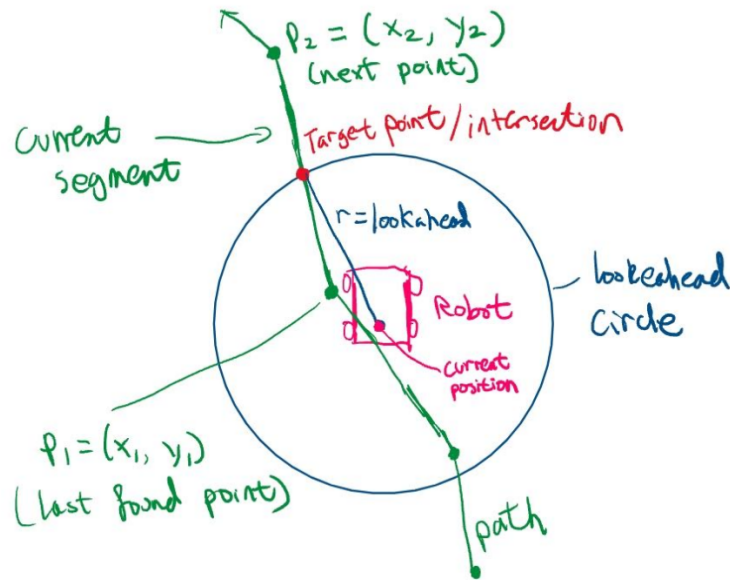 P₂ = (x₂, y₂)
(next point)
Current
segment
Target point/intersection
r=lookahead
lookeahead
circle
Robot
current
position
P₁ = (x₁, y₁)
(last found point)
path